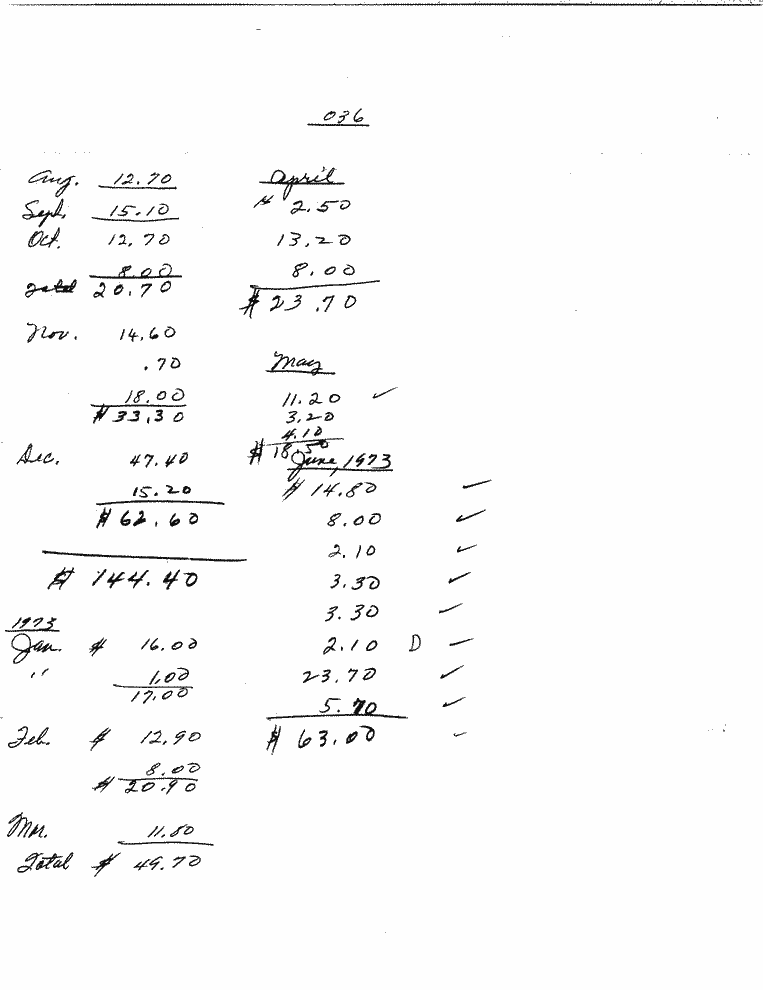 036
Aug. 12.70
Sept. 15.10
Oct. 12.70
8.00
Total 20.70
Nov. 14.60
.70
18.00
$ 33.30
Dec. 47.40
15.20
$ 62.60
$ 144.40
1973
Jan. $ 16.00
" 1.00
17.00
Feb. $ 12.90
8.00
$ 20.90
Mar. 11.80
Total $ 49.70
April
$ 2.50
13.20
8.00
$ 23.70
May
11.20 ✓
3.20
4.10
$ 18.50
June, 1973
$ 14.80 ✓
8.00 ✓
2.10 ✓
3.30 ✓
3.30 ✓
2.10 D ✓
23.70 ✓
5.70 ✓
$ 63.00 ✓